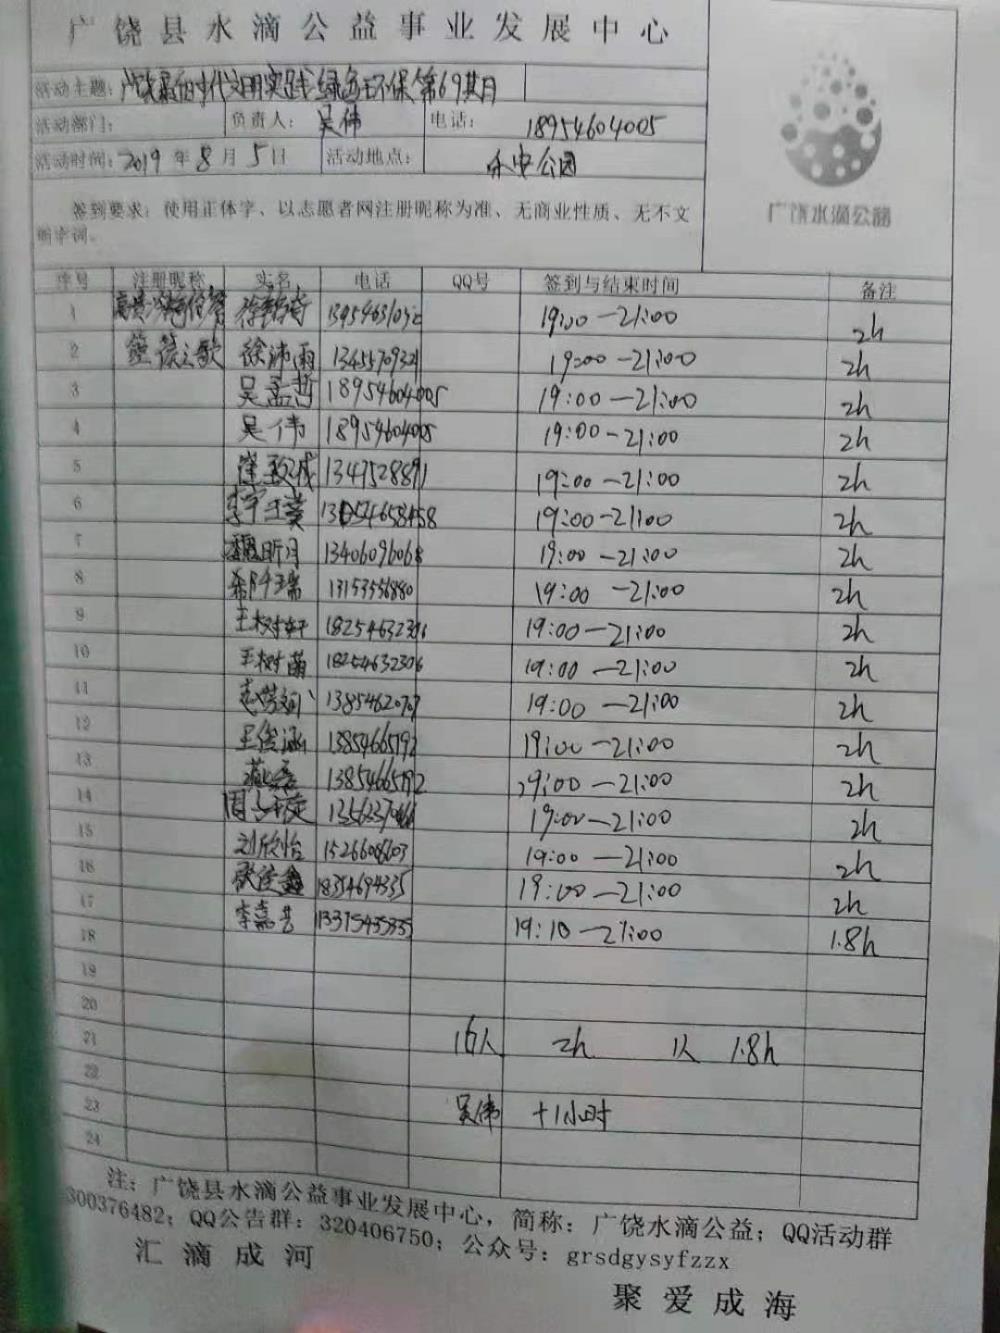 广饶县水滴公益事业发展中心
活动主题: 广饶县新时代文明实践绿色环保第69期
活动部门: 负责人: 吴伟 电话: 18954604005
活动时间: 2019年8月5日 活动地点: 乐安公园
签到要求: 使用正体字、以志愿者网注册昵称为准、无商业性质、无不文
明字词。
广饶水滴公益
序号 注册昵称 实名 电话 QQ号 签到与结束时间 备注
1 19:00—21:00 2h
2 徐沛雨 19:00—21:00 2h
3 吴孟哲 18954604005 19:00—21:00 2h
4 吴伟 18954604005 19:00—21:00 2h
5 崔致成 19:00—21:00 2h
6 19:00—21:00 2h
7 13406096068 19:00—21:00 2h
8 13153556880 19:00—21:00 2h
9 王树轩 18254632306 19:00—21:00 2h
10 王树萌 18254632306 19:00—21:00 2h
11 19:00—21:00 2h
12 王俊涵 13854665792 19:00—21:00 2h
13 燕磊 13854665792 19:00—21:00 2h
14 19:00—21:00 2h
15 刘欣怡 19:00—21:00 2h
16 18354694335 19:00—21:00 2h
17 李嘉芸 13375455335 19:10—21:00 1.8h
18
19
20
21 16人 2h 1人 1.8h
22
23 吴伟 +1小时
24
注: 广饶县水滴公益事业发展中心, 简称: 广饶水滴公益; QQ活动群
300376482; QQ公告群: 320406750; 公众号: grsdgysyfzzx
汇滴成河
聚爱成海